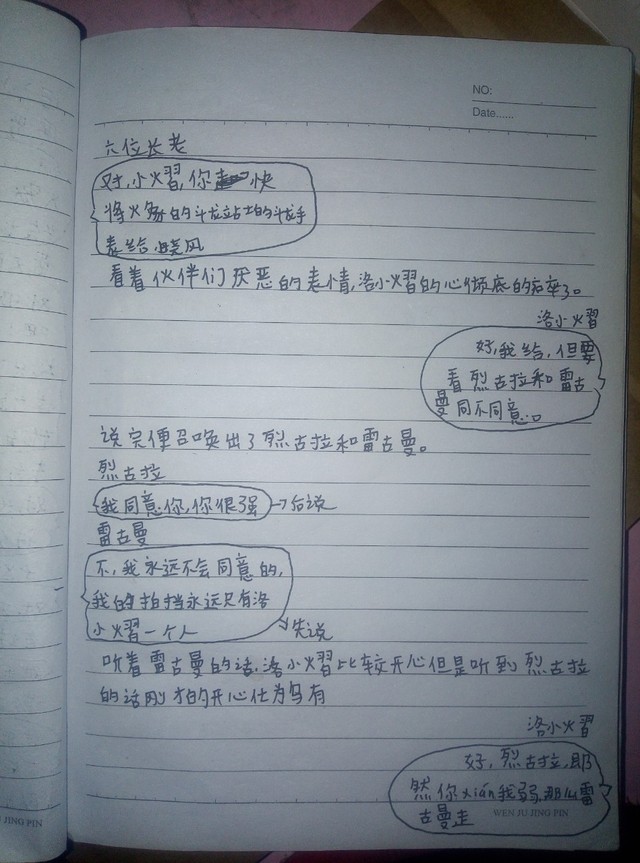 NO:
Date......
六位长老
对,小火習,你快
将火象的斗龙站士的斗龙手
表给晓风
看着伙伴们厌恶的表情,洛小火習的心倾底的碎了。
洛小火習
好,我给,但要
看烈古拉和雷古
曼同不同意。
说完便召唤出了烈古拉和雷古曼。
烈古拉
我同意你,你很强→后说
雷古曼
不,我永远不会同意的,
我的拍挡永远只有洛
小火習一个人→先说
听着雷古曼的话,洛小火習比较开心但是听到烈古拉
的话刚才的开心化为乌有
洛小火習
好,烈古拉,即
然你xián我弱,那么雷
古曼走
JING PIN
WEN JU JING PIN